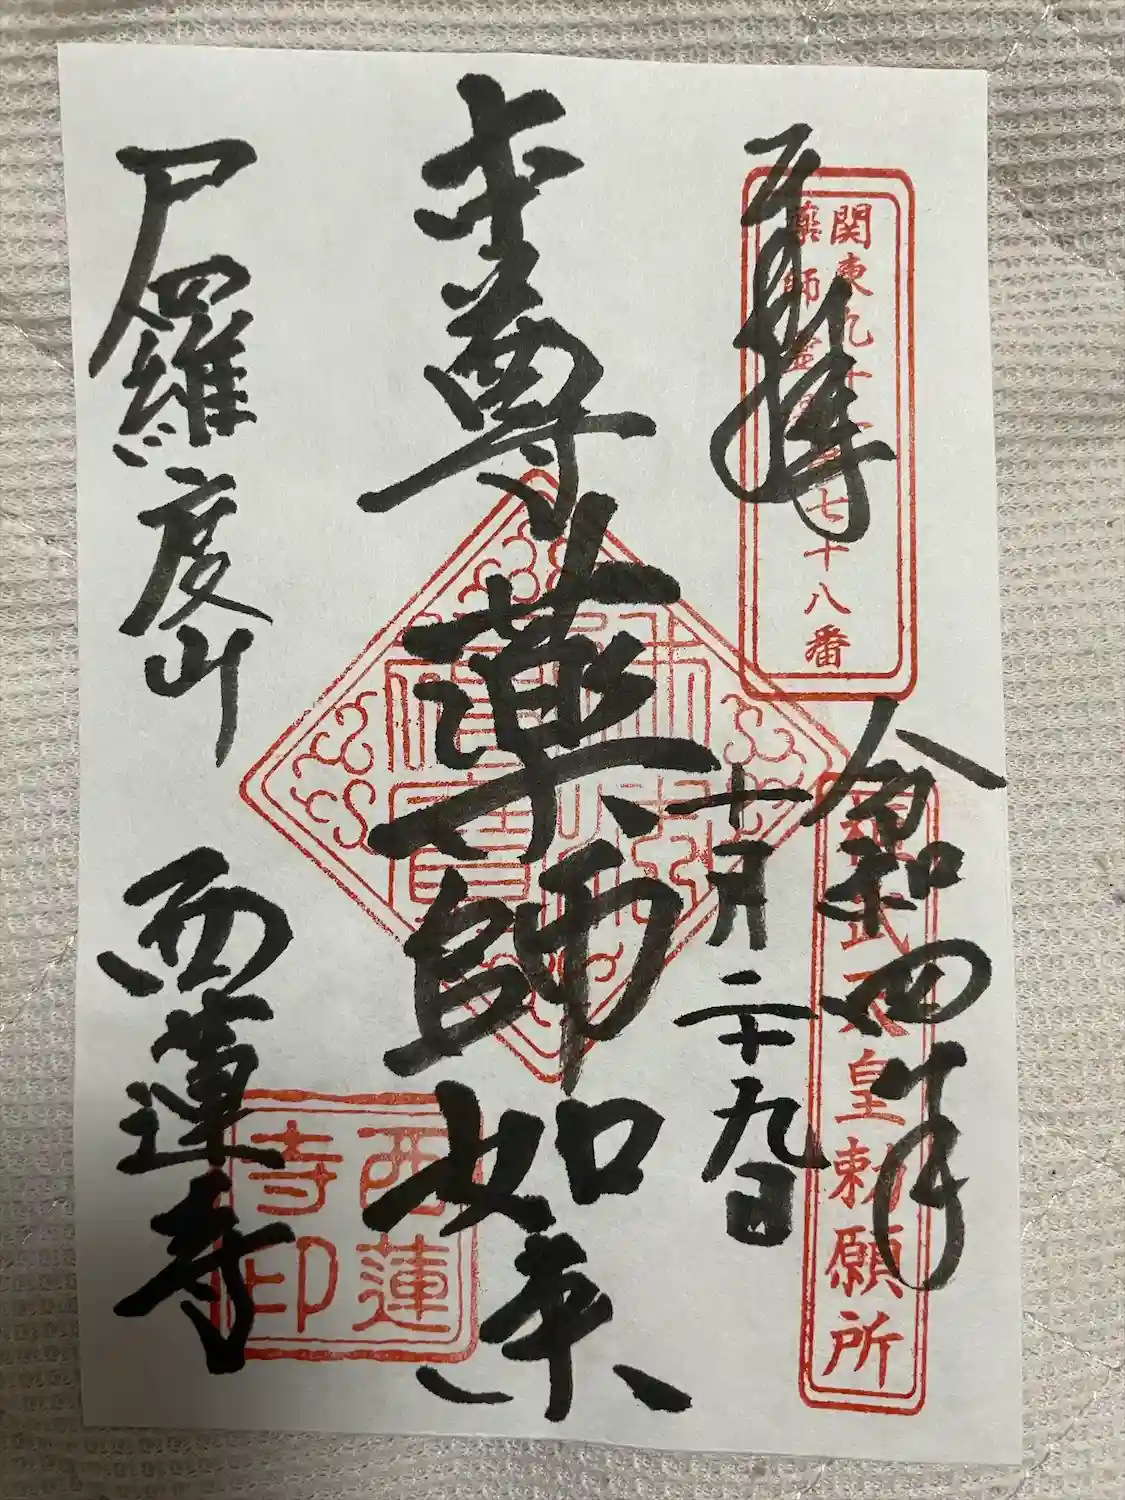 奉拝
関東九十一
薬師霊場
第七十八番
令和四年
桓武天皇勅願所
十月二十九日
本尊薬師如来
佛法僧寶
尸羅度山
西蓮寺
西蓮
寺印